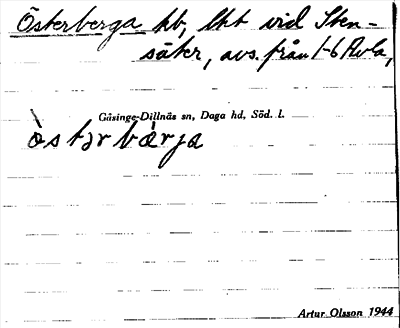 Österberga hb, lht vid Sten-
säter, avs. från 1-6 Avla,
Gåsinge-Dillnäs sn, Daga hd, Söd. l.
òstərbærja
Artur Olsson 1944